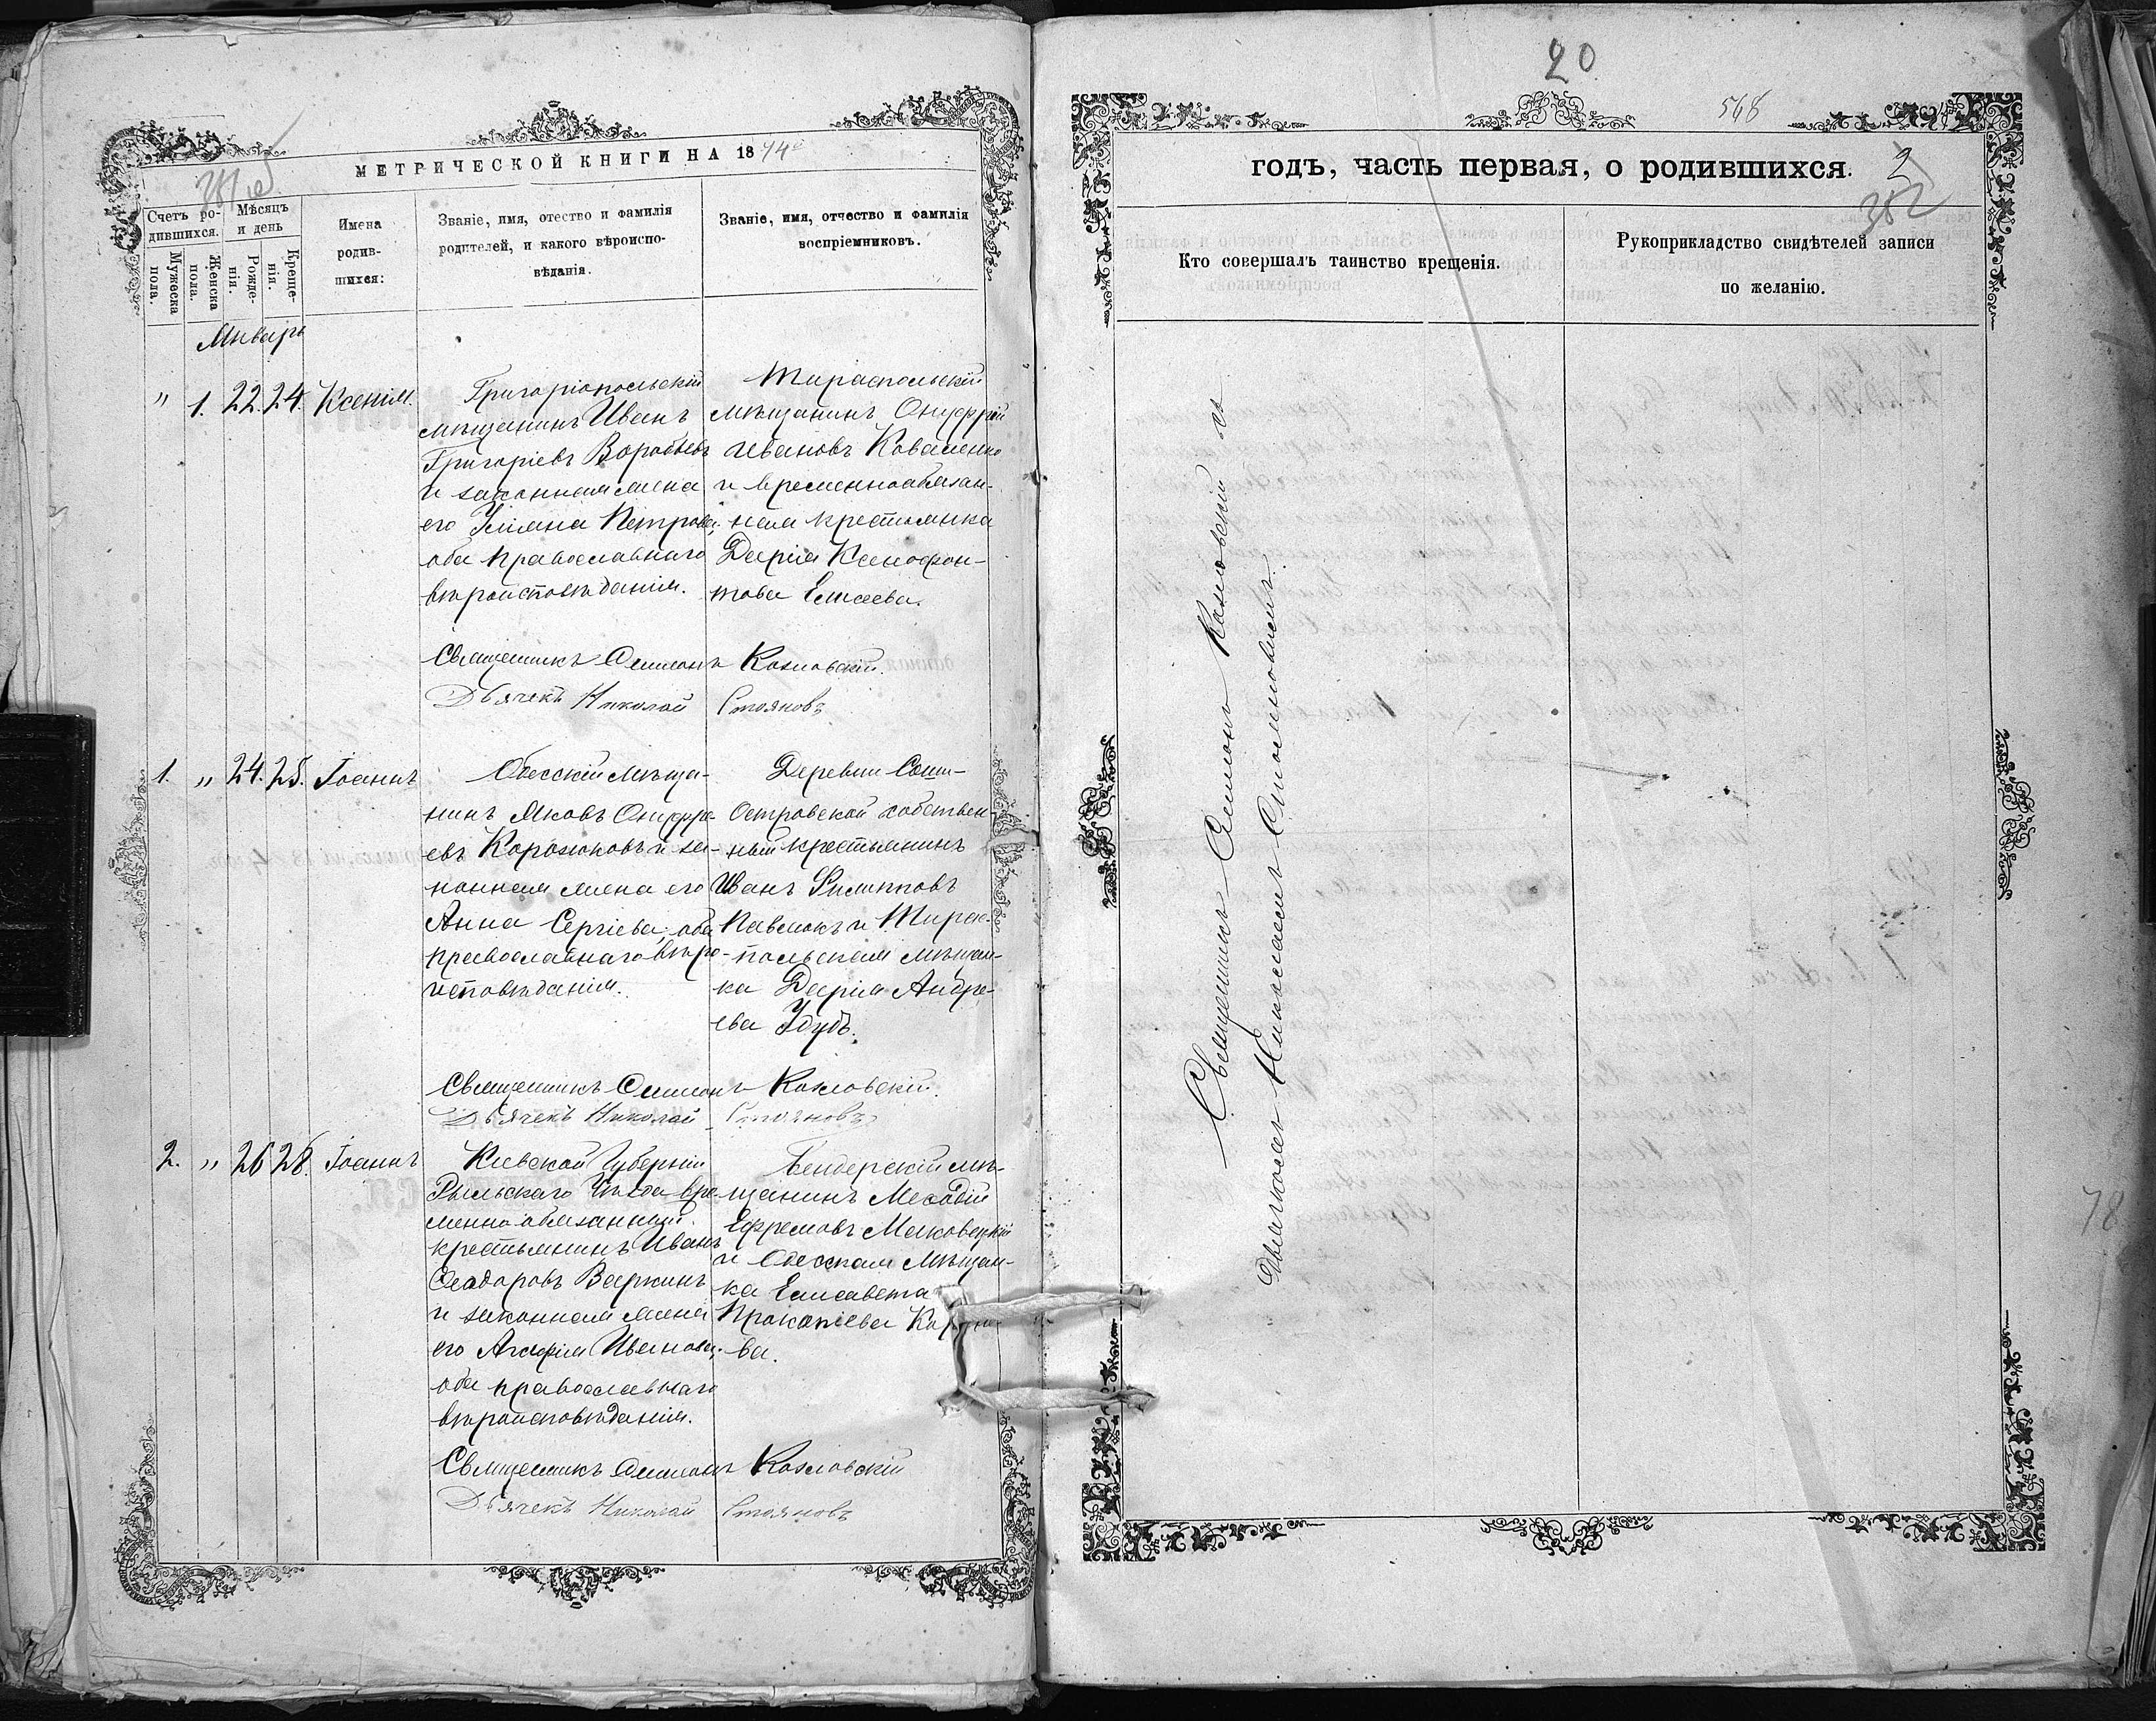 МЕТРИЧЕСКОЙ КНИГИ НА 1874й
Счетъ ро-
дившихся.
Мѣсяцъ
и день
Мужеска
пола.
Женска
пола.
Рожде-
нія.
Креще-
нія.
Имена
родив-
шихся:
Званіе, имя, отество и фамилія
родителей, и какого вѣроиспо-
вѣданія.
Званіе, имя, отчество и фамилія
воспріемниковъ.
Январь
" 1. 22. 24. Ксенія.
Григоріопольскій
мѣщанинъ Иванъ
Григоріевъ Воробьевъ
и законная жена
его Уліяна Петрова,
оба православнаго
вѣроисповѣданія.
Тираспольскій
мѣщанинъ Онуфрій
Ивановъ Коваленко
и временнообязан-
ная крестьянка
Дарія Ксенофон-
това Елисеева.
Священникъ Симеонъ Козловскій.
Дьячекъ Николай Стояновъ
1. " 24. 25. Іоаннъ
Одесскій мѣща-
нинъ Яковъ Онуфрі-
евъ Корозюковъ и за-
конная жена его
Анна Сергіева, оба
православнаго вѣро-
исповѣданія.
Деревни
Островской собствен-
ный крестьянинъ
Иванъ Филипповъ
Павлюкъ и Тирас-
польская мѣщан-
ка Дарія Андре-
ева Удудъ.
Священникъ Симеонъ Козловскій.
Дьячекъ Николай Стояновъ
2. " 26 28. Іоаннъ
Кіевской Губерніи
Уѣзда вре-
менно обязанный
крестьянинъ Иванъ
Ѳеодоровъ Варкинъ
и законная жена
его Агафія Иванова,
оба православнаго
вѣроисповѣданія.
Бендерскій мѣ-
щанинъ Меѳодій
Ефремовъ Маковецкій
и Одесская мѣщан-
ка Елисавета
Прокопіева
ва.
Священникъ Симеонъ Козловскій
Дьячекъ Николай Стояновъ
20
568
годъ, часть первая, о родившихся.
2
382
Кто совершалъ таинство крещенія.
Рукоприкладство свидѣтелей записи
по желанію.
Священникъ Симеонъ Козловскій съ
Дьячкомъ Николаемъ Стояновымъ
78